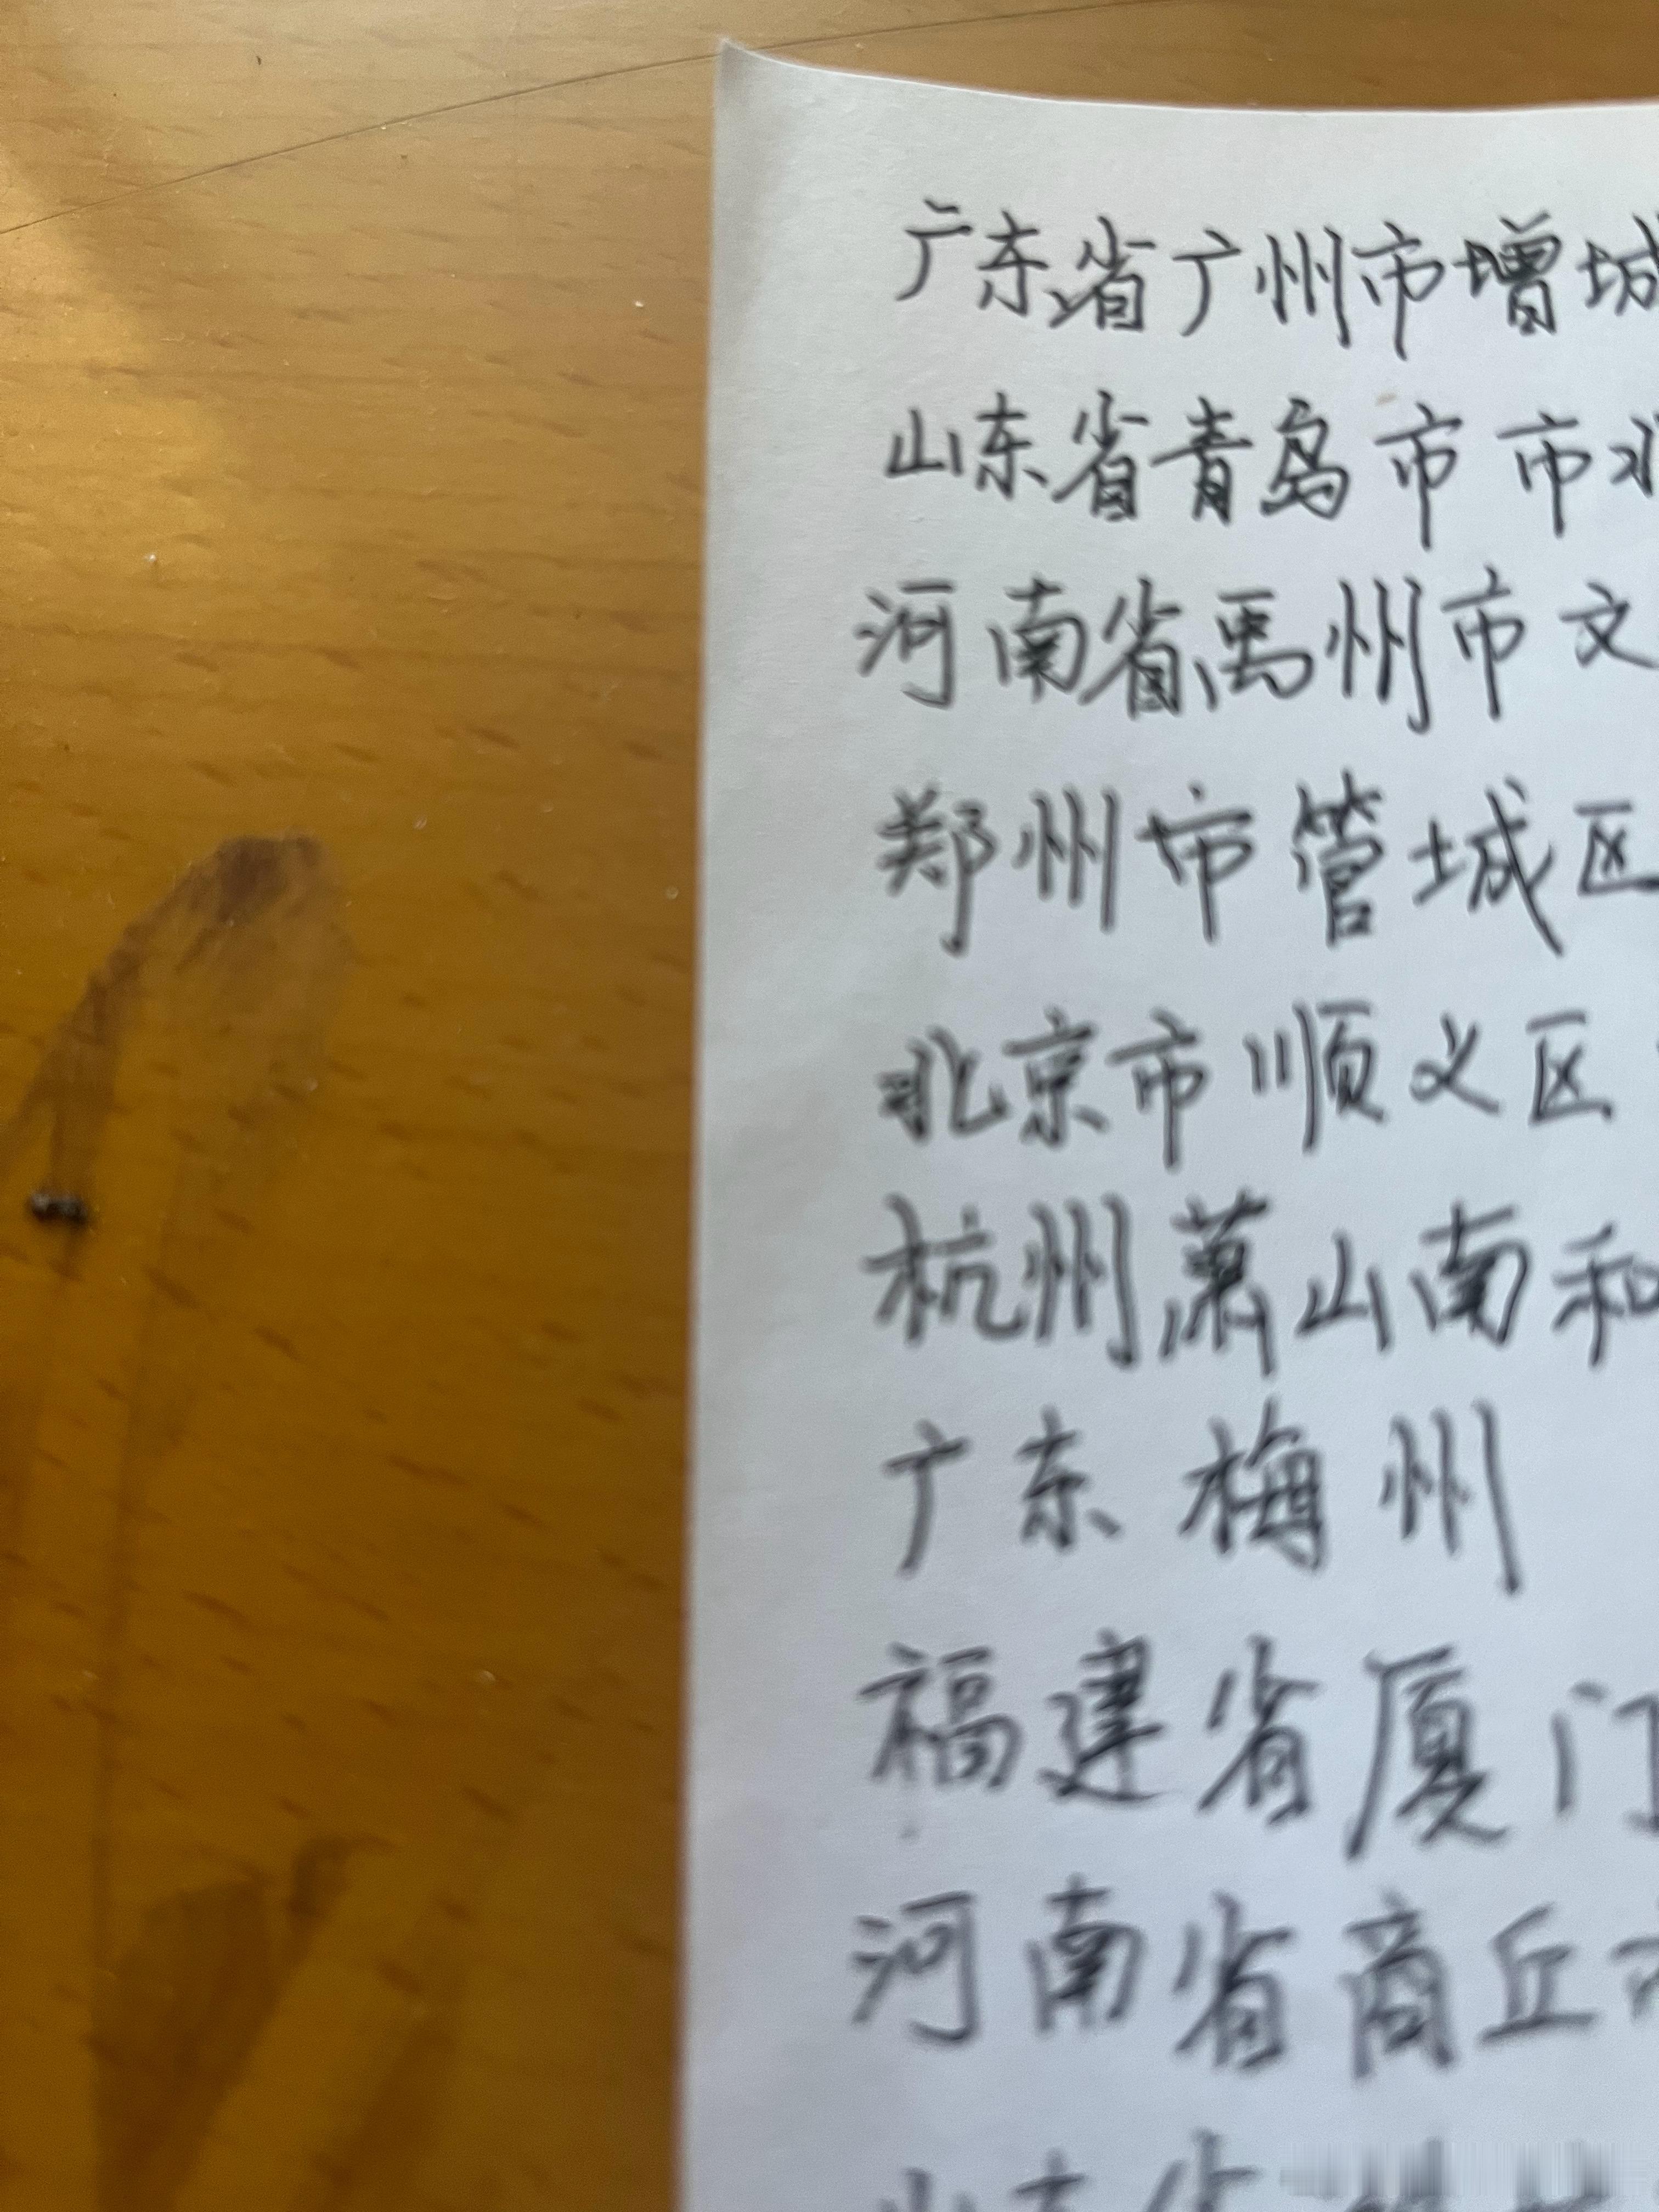 广东省广州市增城
山东省青岛市市北
河南省禹州市文
郑州市管城区
北京市顺义区
杭州萧山南和
广东梅州
福建省厦门
河南省商丘市
山东省